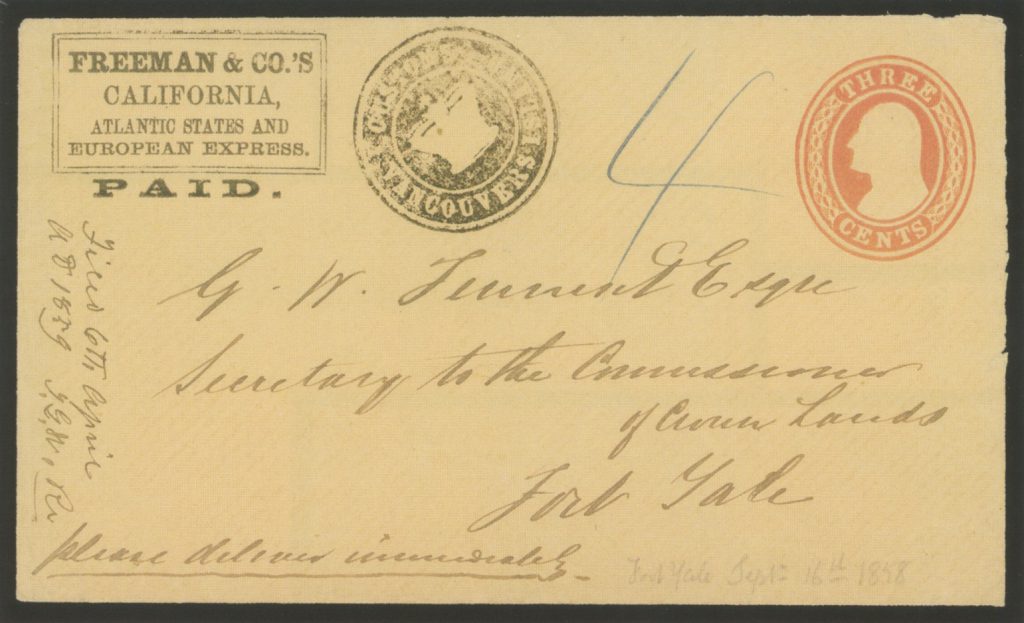 FREEMAN & CO.'S
CALIFORNIA,
ATLANTIC STATES AND
EUROPEAN EXPRESS.
PAID.
VANCOUVERS
4
THREE
CENTS
G. W. Esqre
Secretary to the Commissioner
of Crown Lands
Fort Yale
please deliver immediately
Filed 6th April
A D 1859
Fort Yale Sept 16th 1858